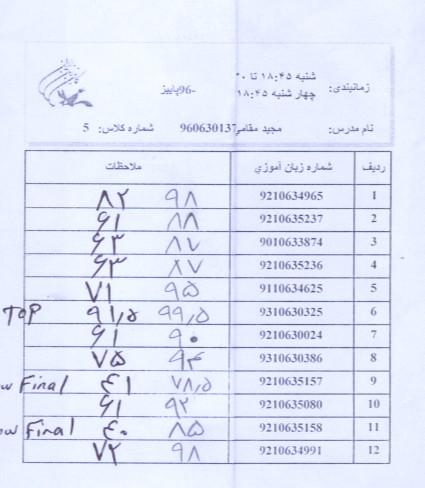 زمانبندی: شنبه ۱۸:۴۵ تا ۲۰
چهار شنبه ۱۸:۴۵ -96پاییز
نام مدرس: مجید مقامی 960630137 شماره کلاس: 5
ردیف شماره زبان آموزي ملاحظات
1 9210634965 ۹۸ ۸۲
2 9210635237 ۸۸ ۶۱
3 9010633874 ۸۷ ۶۳
4 9210635236 ۸۷ ۶۳
5 9110634625 ۹۵ ۷۱
6 9310630325 ۹۹,۵ ۹۱,۵ TOP
7 9210630024 ۹۰ ۶۱
8 9310630386 ۹۴ ۷۵
9 9210635157 ۷۸,۵ ۴۱ Final
10 9210635080 ۹۲ ۶۱
11 9210635158 ۸۵ ۴۰ Final
12 9210634991 ۹۸ ۷۲